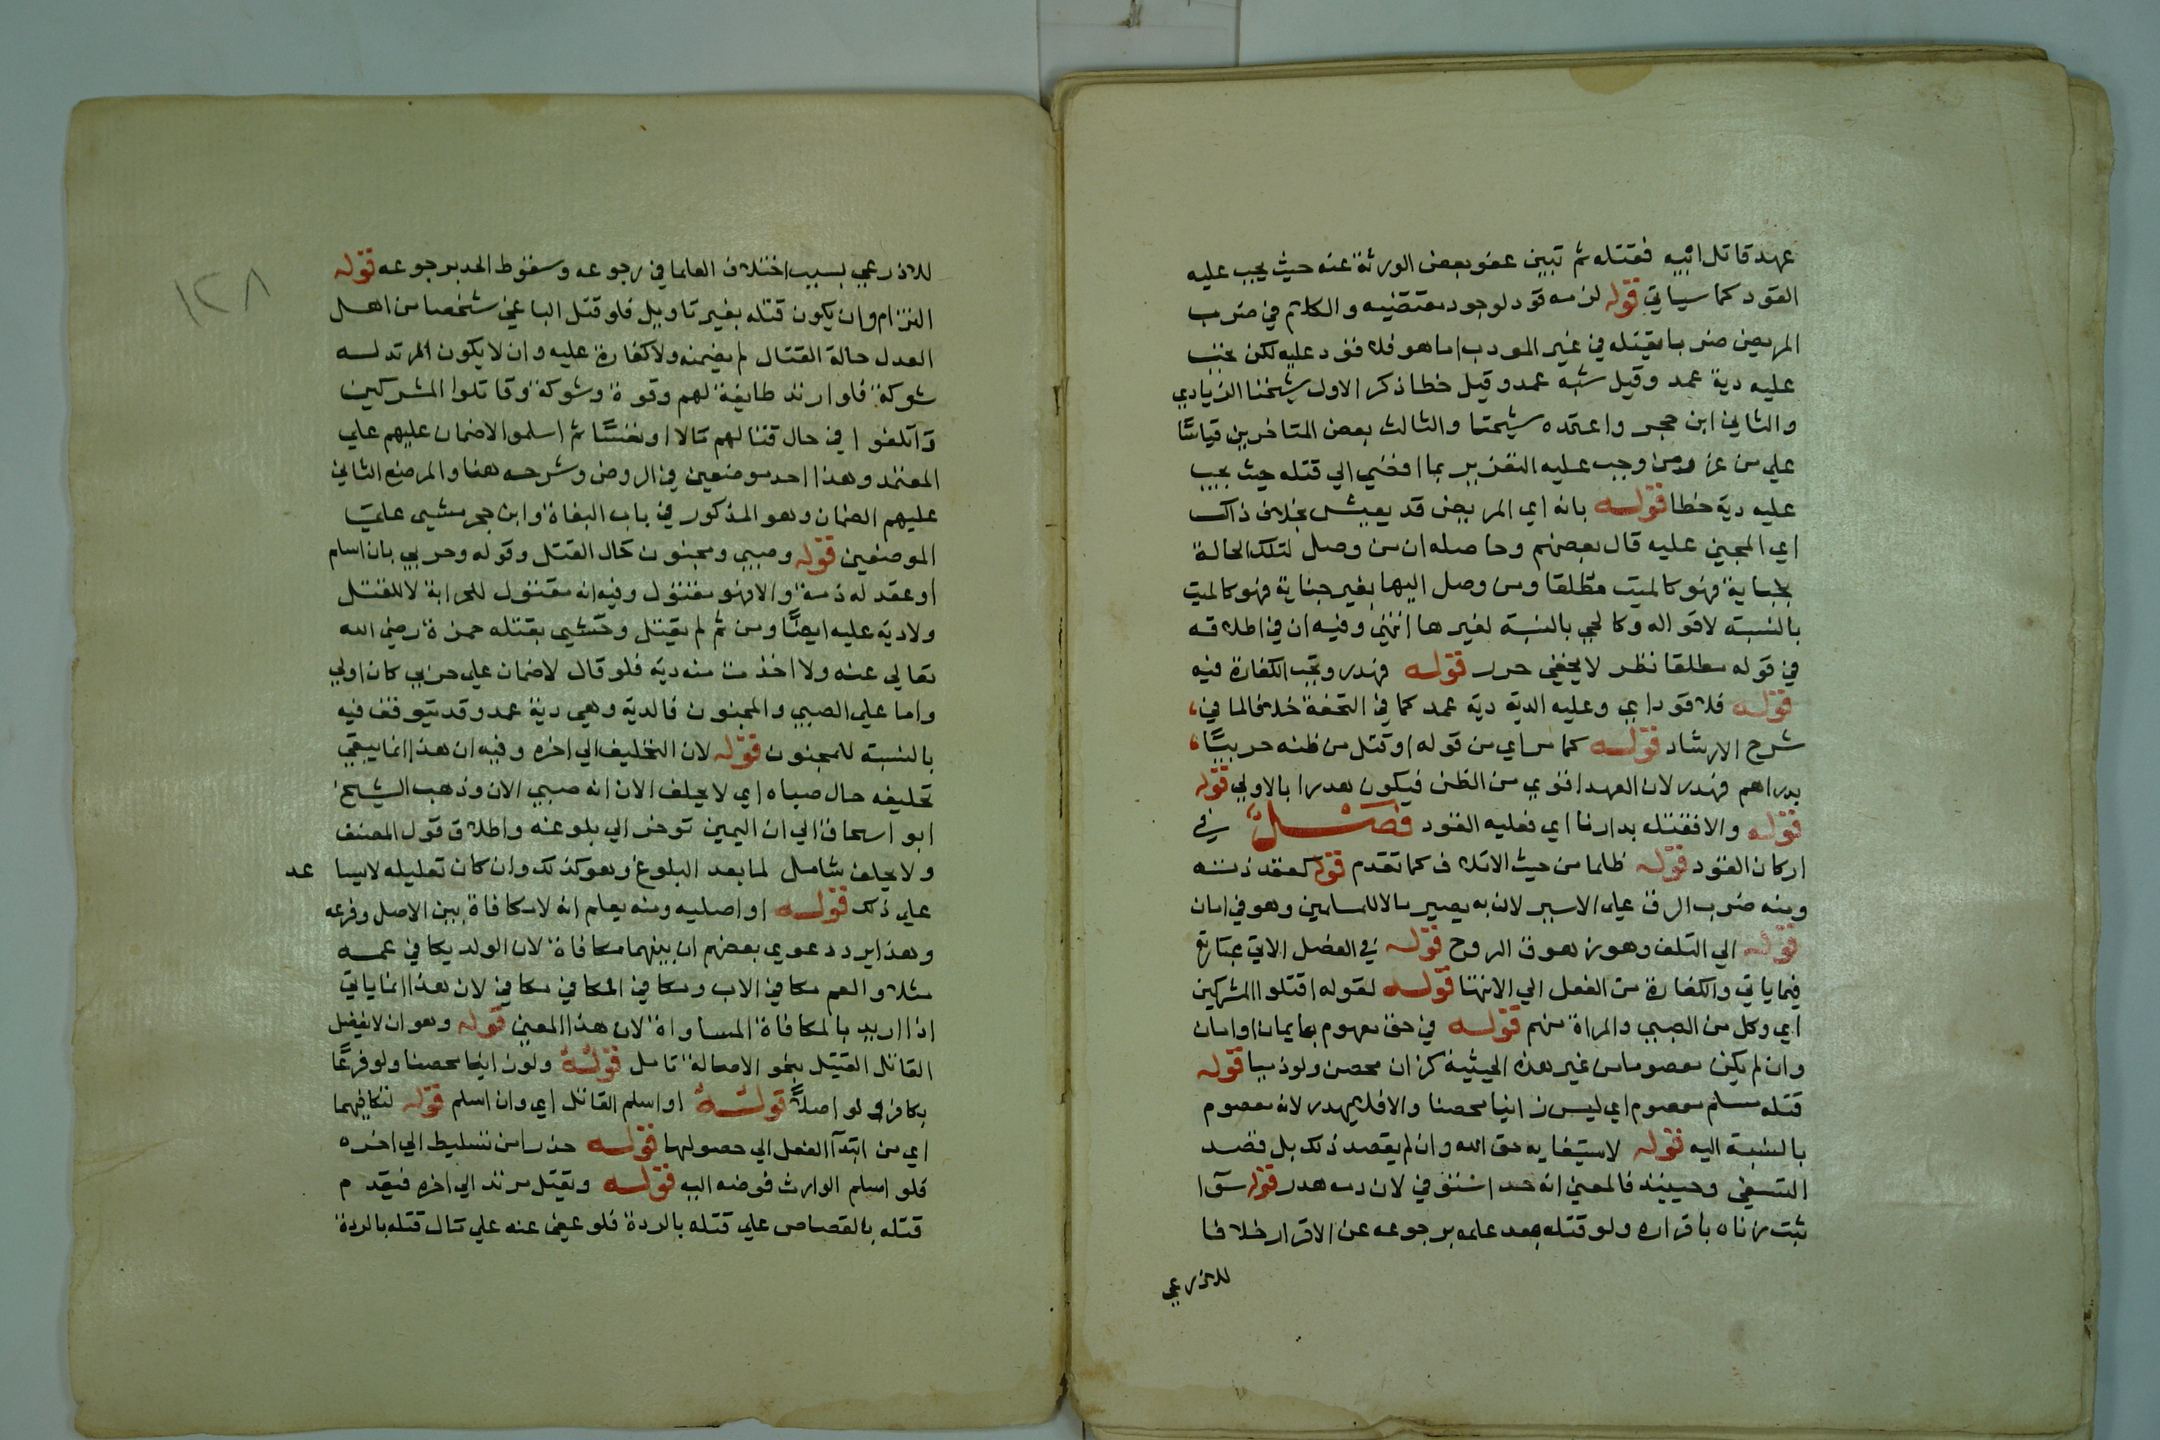 عهد قاتل ابيه فقتله ثم تبين عفو بعض الورثة عنه حيث يجب عليه
القود كما سياتي قوله لزمه قود لوجود مقتضيه والكلام في ضرب
المريض ضربا يقتله في غير المودب اما هو فلا قود عليه لكن تجب
عليه دية عمد وقيل شبه عمد وقيل خطا ذكر الاول شيخنا الزيادي
والثاني ابن حجر واعتمده شيختا والثالث بعض المتاخرين قياسًا
علي من عزر ومن وجب عليه التعزير بما افضي الي قتله حيث يجب
عليه دية خطا قوله بانه اي المريض قد يعيش بخلاف ذاك
اي المجني عليه قال بعضهم وحاصله ان من وصل لتلك الحالة
بجناية فهو كالميت مطلقا ومن وصل اليها بغير جناية فهو كالميت
بالنسبة لاقواله وكالحي بالنسبة لغيرها انتهي وفيه ان في اطلاقه
في قوله مطلقا نظر لا يخفي حرر قوله فهدر وتجب الكفارة فيه
قوله فلا قود اي وعليه الدية دية عمد كما في التحفة خلافا لما في
شرح الارشاد قوله كما مر اي من قوله او قتل من ظنه حربيًا
بدراهم فهدر لان العهد اقوي من الظن فيكون هدرا بالاولي قوله
قوله والا فقتله بدارنا اي فعليه القود فصل في
اركان القود قوله ظلما من حيث الاتلاف كما تقدم قوله كعقد ذمته
ومنه ضرب الرق علي الاسير لان به يصير مالا للمسلمين وهو في امان
قوله الي التلف وهو زهوق الروح قوله في الفصل الاتي عبارته
فيما ياتي والكفارة من الفعل الي الانتها قوله لقوله اقتلوا المشركين
اي وكل من الصبي والمراة منهم قوله في حق معصوم بايمان او امان
وان لم يكن معصوما من غير هذه الحيثية كزان محصن ولو ذميا قوله
قتله مسلم معصوم اي ليس زانيا محصنا والا فلا يهدر لانه معصوم
بالنسبة اليه قوله لاستيفايه حق الله وان لم يقصد ذلك بل قصد
التشفي وحينيذ فالمعني انه حد استوفي لان دمه هدر قوله سوآ
ثبت زناه باقراره ولو قتله بعد علمه برجوعه عن الاقرار خلافا
للاذرعي
١٢٨
للاذرعي بسبب اختلاف العلما في رجوعه وسقوط الحد برجوعه قوله
التزام وان يكون قتله بغير تاويل فلو قتل الباغي شخصا من اهل
العدل حالة القتال لم يضمنه ولا كفارة عليه وان لا يكون المرتد له
شوكة فلو ارتد طايفة لهم وقوة وشوكة وقاتلوا المشركين
واتلفوا في حال قتالهم مالا او نفسًا ثم اسلموا لا ضمان عليهم علي
المعتمد وهذا احد موضعين في الروض وشرحه هنا والموضع الثاني
عليهم الضمان وهو المذكور في باب البغاة وابن حجر مشي علي
الموضعين قوله وصبي ومجنون حال القتل وقوله وحربي بان اسلم
او عقد له ذمة والا فهو مقتول وفيه انه مقتول للحرابة لا للقتل
ولا دية عليه ايضًا ومن ثم لم يقتل وحشي بقتله حمزة رضي الله
تعالي عنه ولا اخذت منه دية فلو قال لا ضمان علي حربي كان اولي
واما علي الصبي والمجنون فالدية وهي دية عمد وقد يتوقف فيه
بالنسبة للمجنون قوله لان التحليف الي اخره وفيه ان هذا انما يبقي
تحليفه حال صباه اي لا يحلف الان انه صبي الان وذهب الشيخ
ابو اسحاق الي ان اليمين توخر الي بلوغه واطلاق قول المصنف
ولا يحلف شامل لما بعد البلوغ وهو كذلك وان كان تعليله لا يسا عد
علي ذلك قوله او اصليه ومنه يعلم انه لا مكافاة بين الاصل وفرعه
وهذا يرد دعوي بعضهم ان بينهما مكافاة لان الولد يكافي عمه
مثلا والعم مكافي الاب ومكافي المكافي مكافي لان هذا انما ياتي
اذا اريد بالمكافاة المساواة لان هذا المعني قوله وهو ان لا يفضل
القاتل القتيل بنحو الاصالة تامل قوله ولو زانيا محصنا ولو فرعًا
بكافر ولو اصلاً قوله او اسلم القاتل اي وان اسلم قوله لتكافيهما
اي من ابتدآ الفعل الي حصولها قوله حذرا من تسليط الي اخره
فلو اسلم الوارث فوضه اليه قوله ويقتل مرتد الي اخره فيقدم
قتله بالقصاص علي قتله بالردة فلو عفي عنه علي مال قتله بالردة